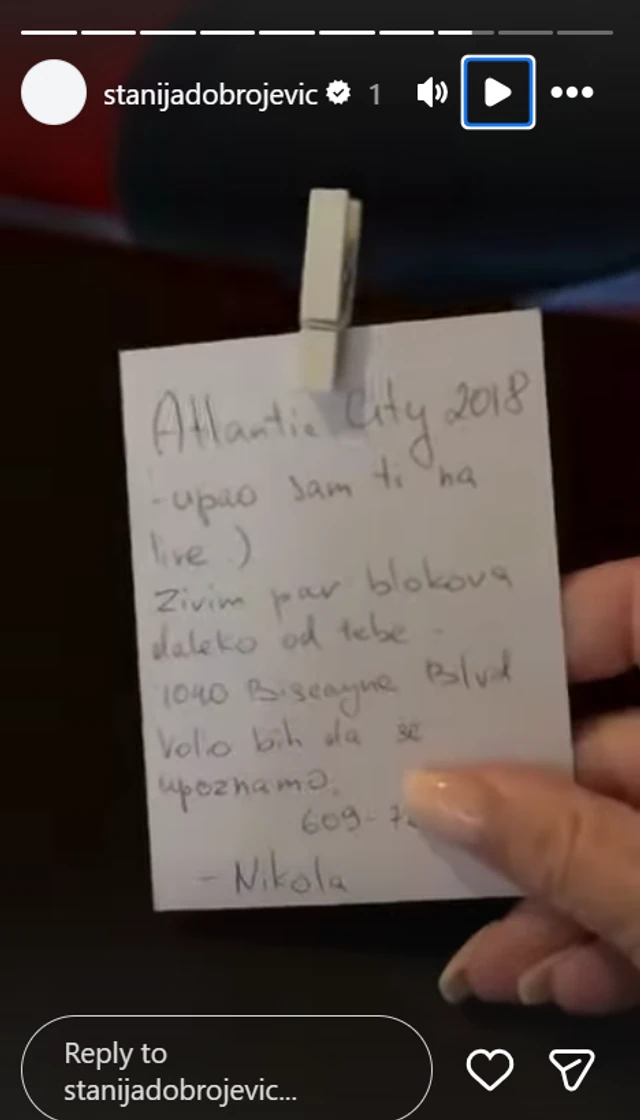 stanijadobrojevic 1
Atlantic City 2018
-upao sam ti na
live :)
Zivim par blokova
daleko od tebe -
1040 Biscayne Blvd
Volio bih da se
upoznamo.
609-7
- Nikola
Reply to
stanijadobrojevic...